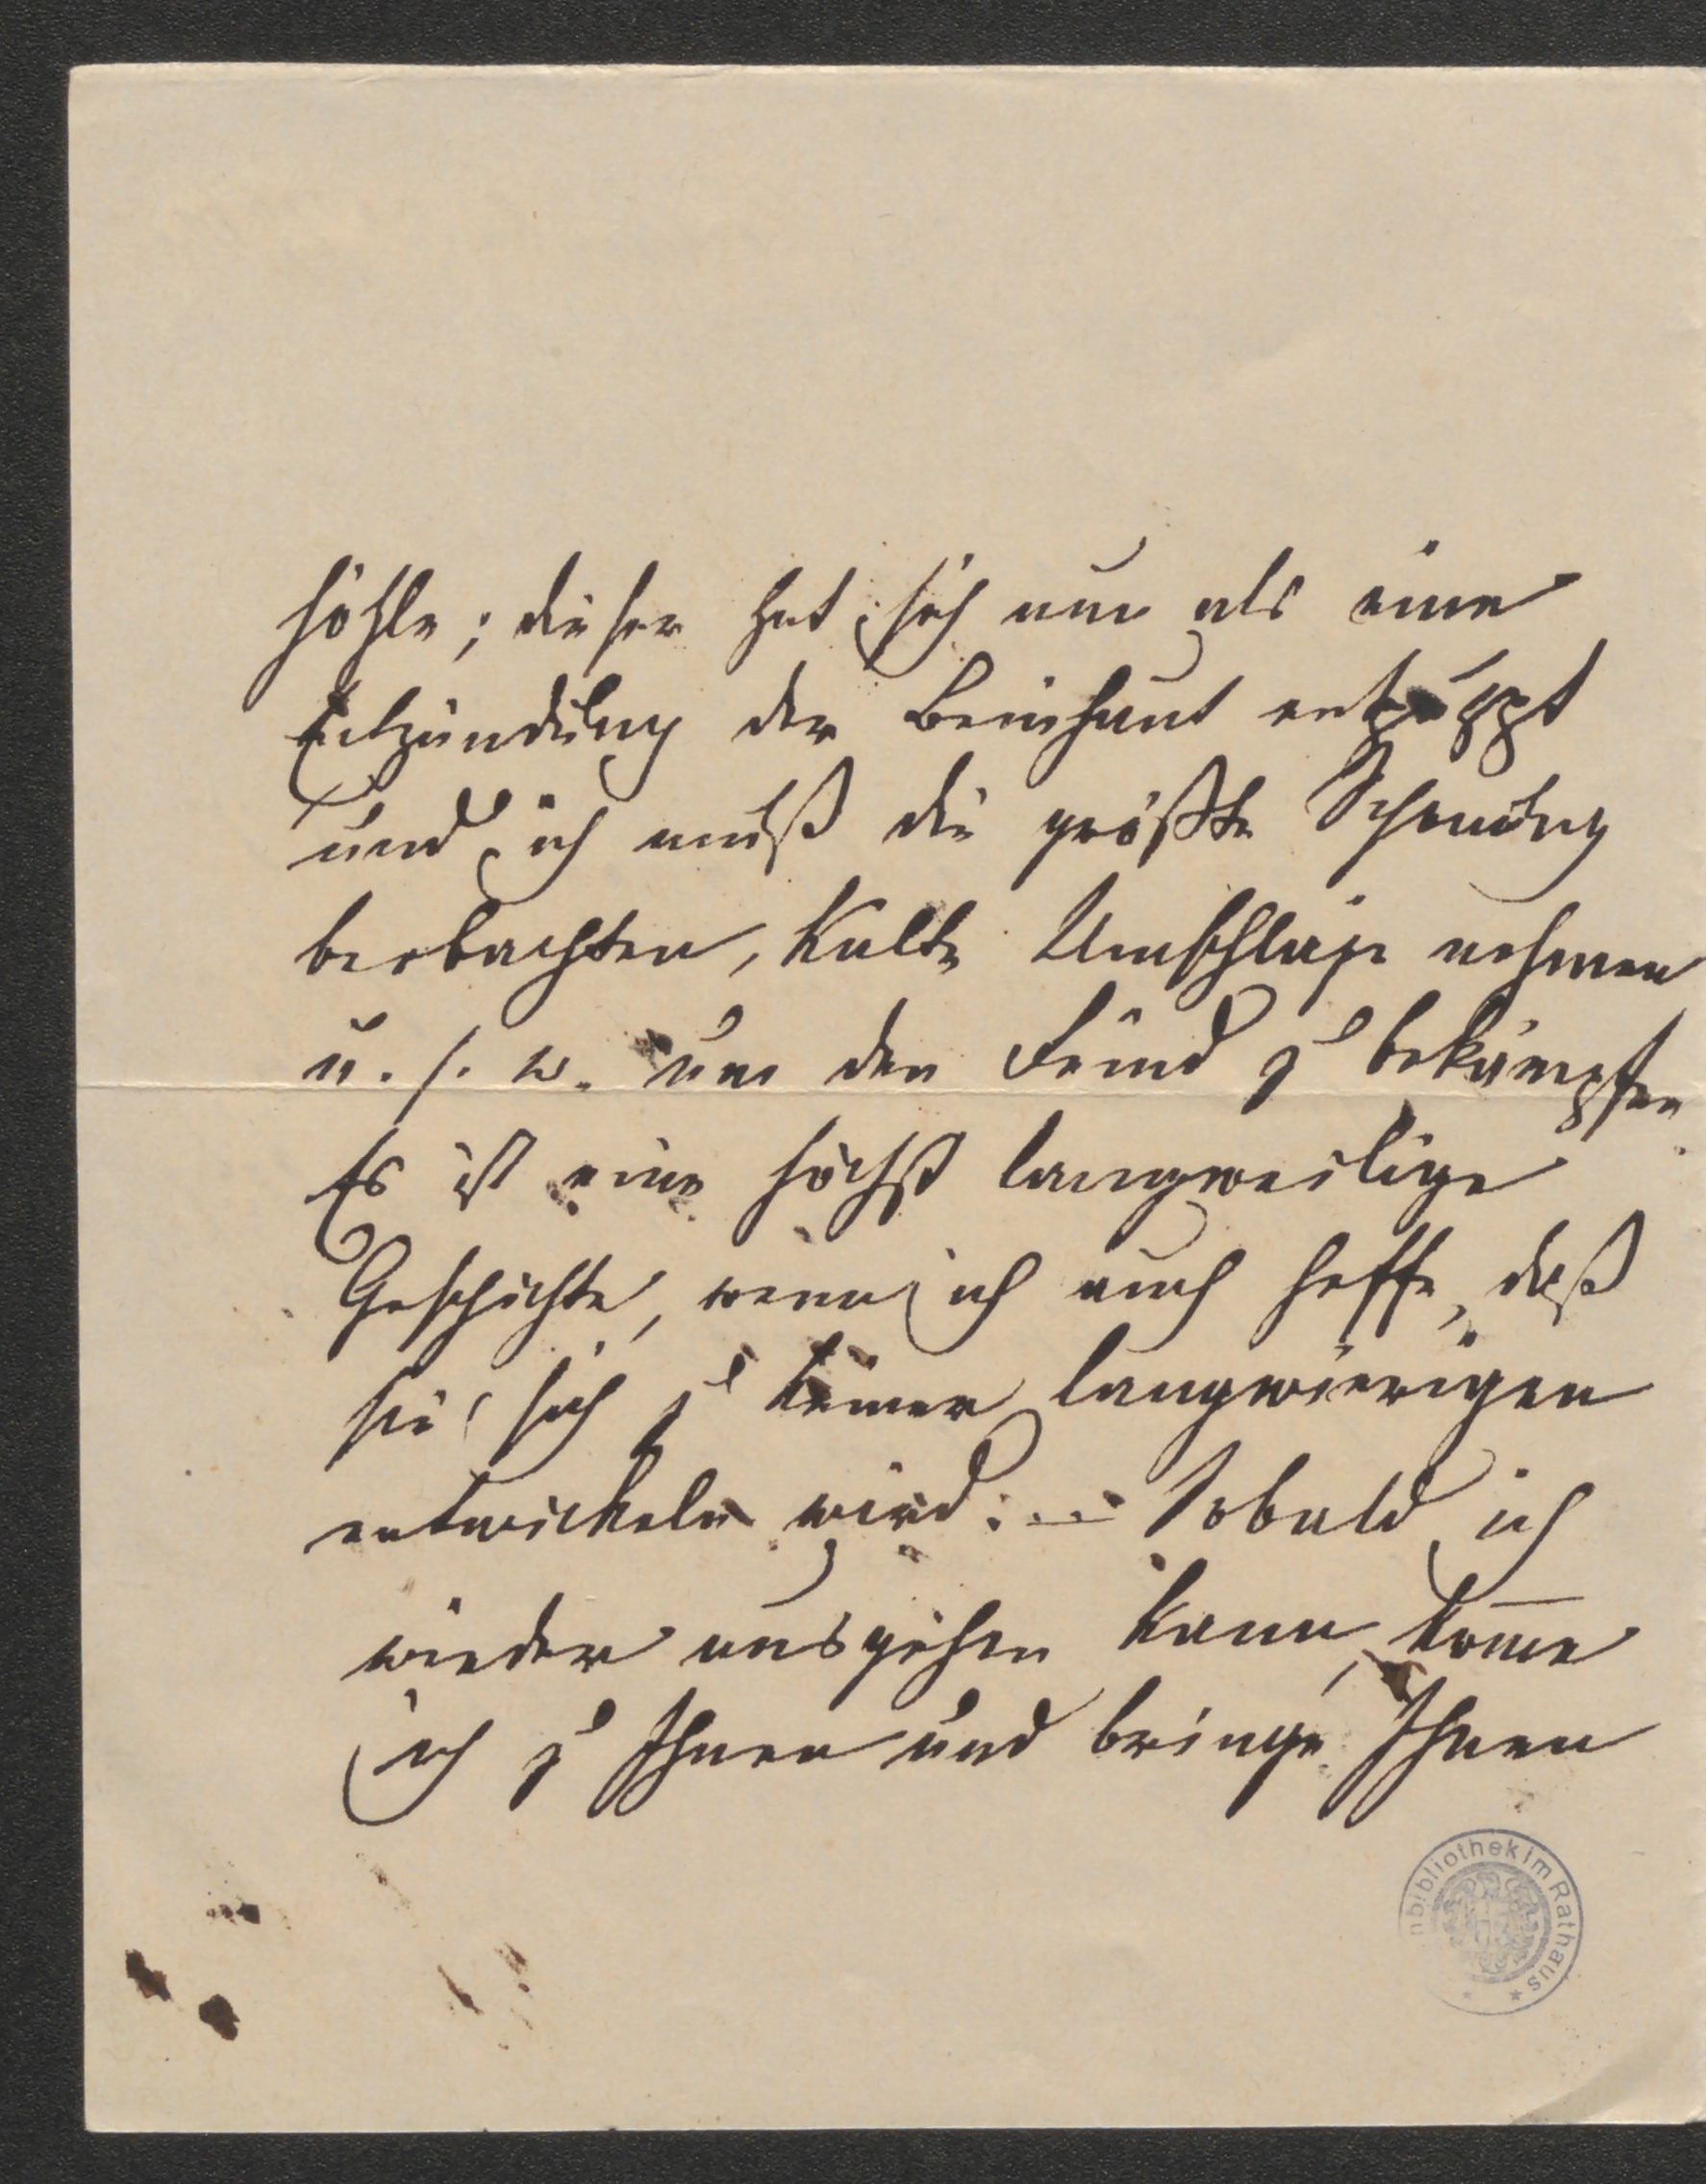 höhle; dieser hat sich nun als eine
Entzündung der Beinhaut entpuppt
und ich muß die größte Schonung
beobachten, kalte Umschläge nehmen
u. s. w. um den Feind zu bekämpfen.
Es ist eine höchst langweilige
Geschichte, wenn ich auch hoffe, daß
sie sich zu keiner langwierigen
entwickeln wird. — Sobald ich
wieder ausgehen kann, kom̅e
ich zu Ihnen und bringe Ihnen
nbibliothek im Rathaus